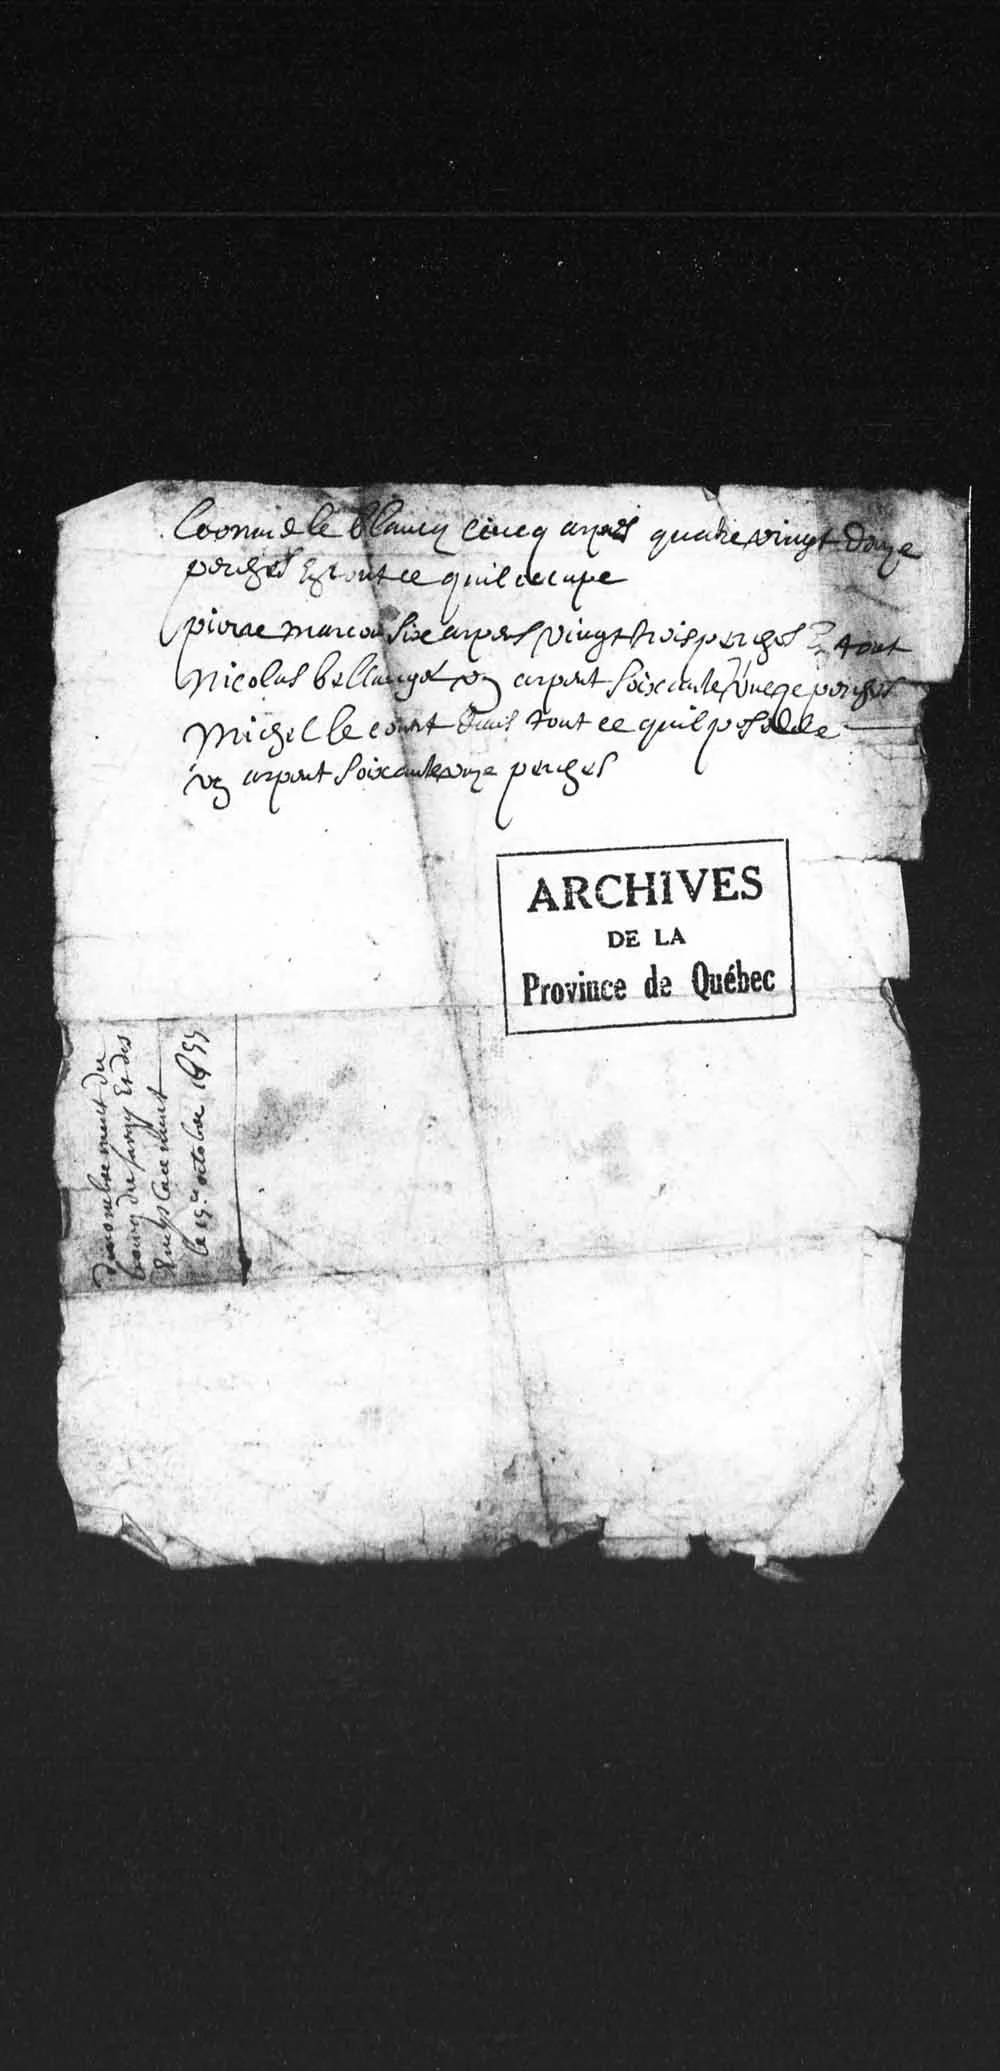 Leonard le blancq cincq arpens quatre vingt douze
perches En tout ce quil occupe
pierre marcou Six arpens vingt trois perches En tout
Nicolas bellanger un arpent soixante unze perches
Michel le court dans tout ce quil possedde
un arpent soixante onze perches
ARCHIVES
DE LA
Province de Québec
denombrement du
bourg du fargy Et des
le 15e octobre 1655